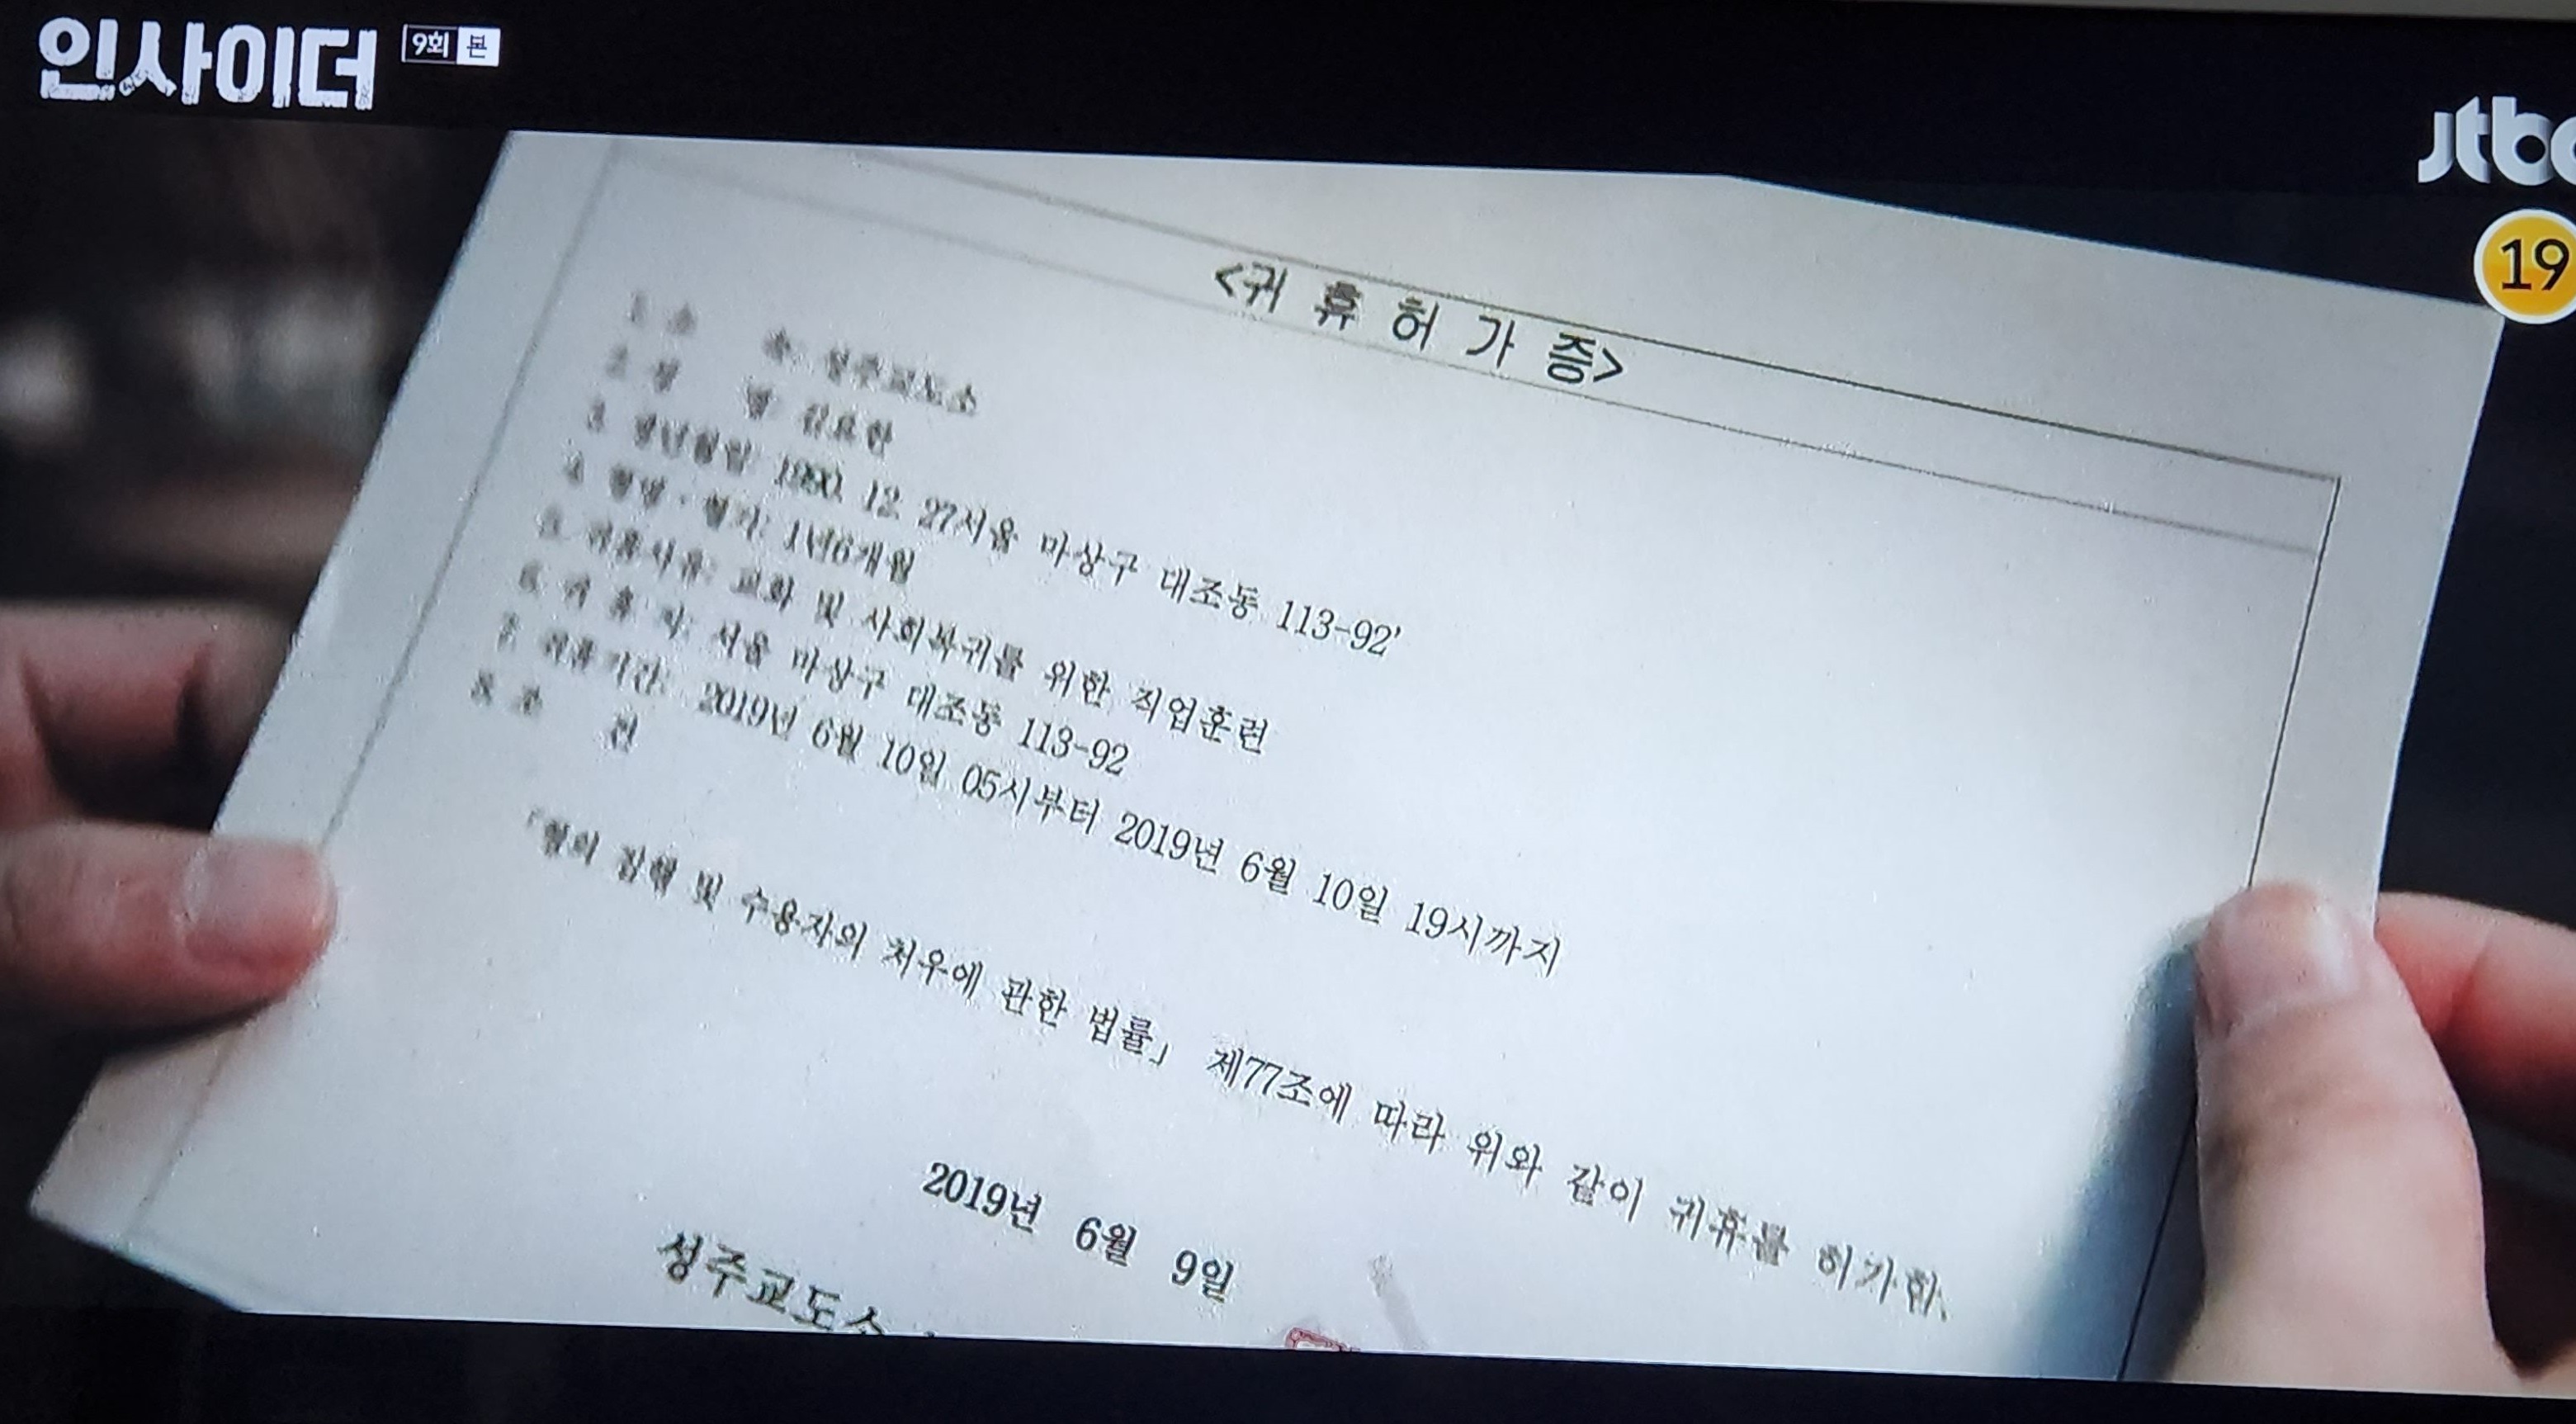 인사이더 9회 본
jtbc
19
<귀 휴 허 가 증>
1. 소 속: 성주교도소
2. 성 명: 김요한
3. 생년월일: 1990. 12. 27서울 마상구 대조동 113-92'
4. 형명·형기: 1년6개월
5. 귀휴사유: 교화 및 사회복귀를 위한 직업훈련
6. 귀 휴 지: 서울 마상구 대조동 113-92
7. 귀휴기간: 2019년 6월 10일 05시부터 2019년 6월 10일 19시까지
8. 조 건
「형의 집행 및 수용자의 처우에 관한 법률」 제77조에 따라 위와 같이 귀휴를 허가함.
2019년 6월 9일
성주교도소